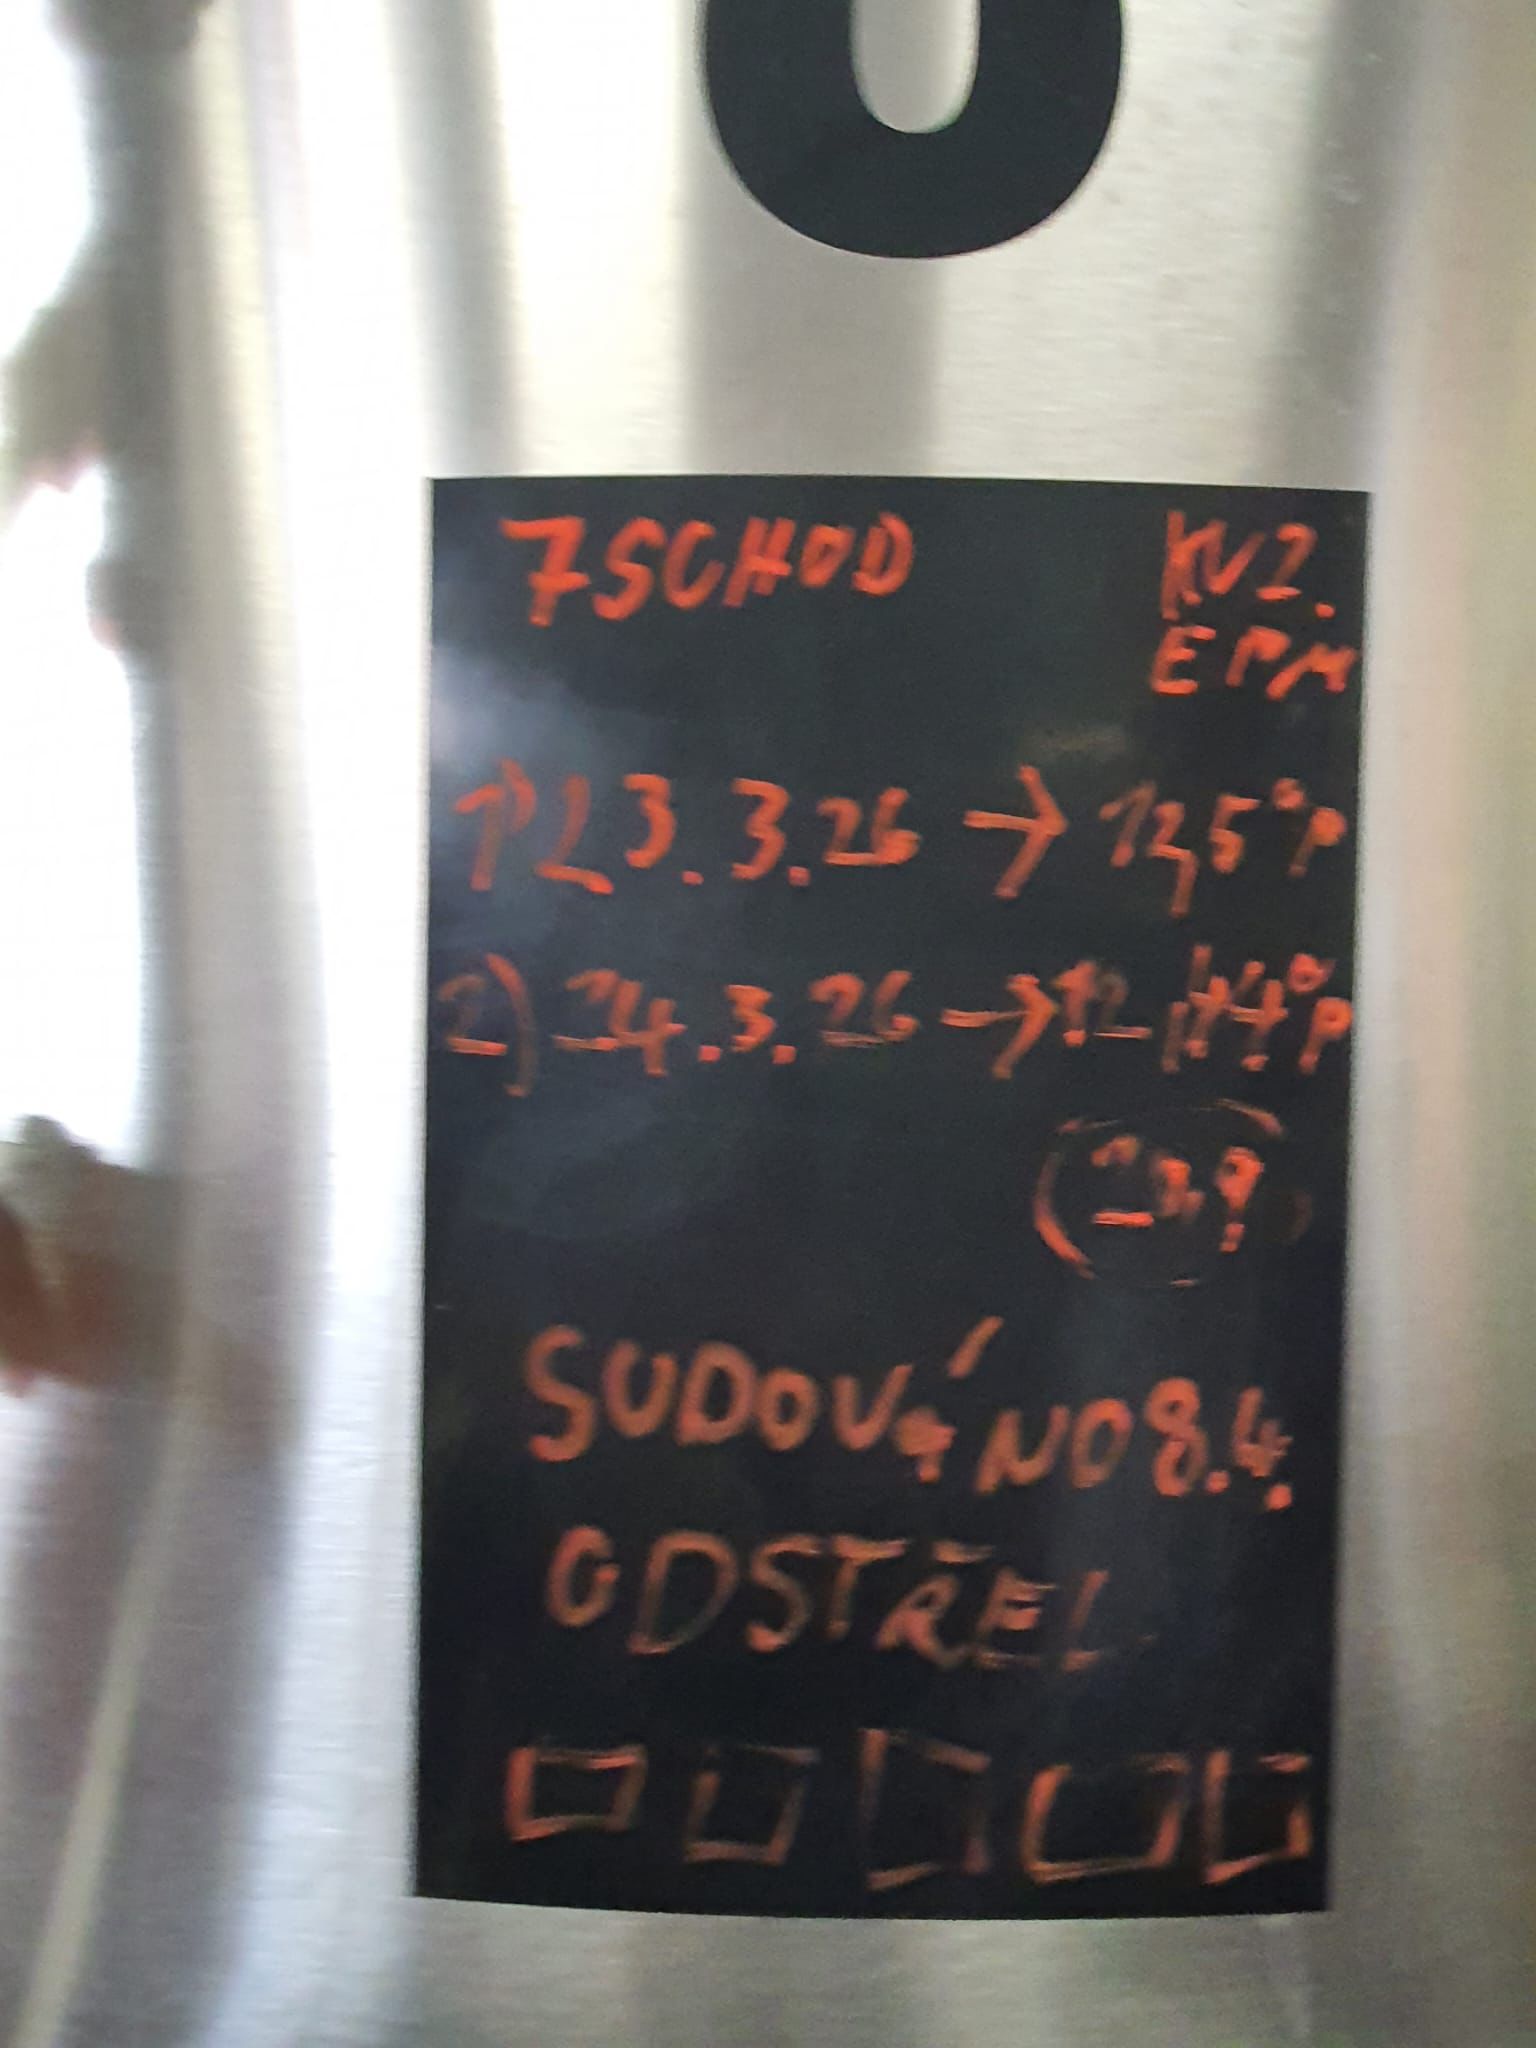 7SCHOD KVZ.
EPM
1) 23.3.26 → 12,5°P
2) 24.3.26 → 12,44°P
SUDOVÁNO 8.4.
ODSTŘEL